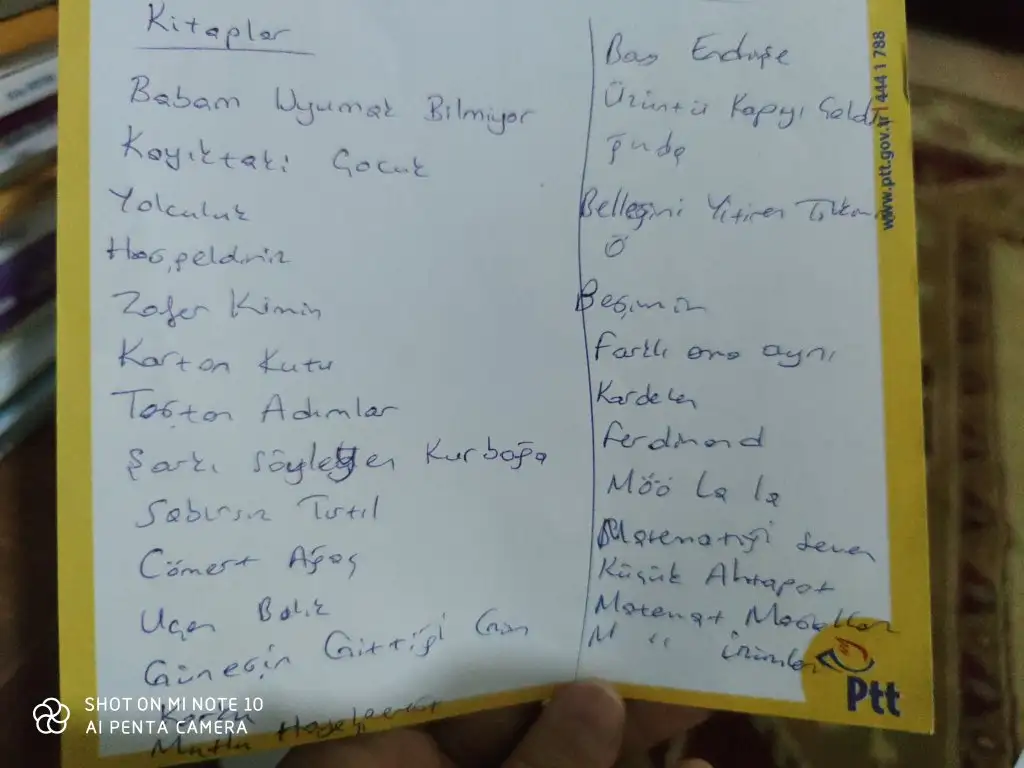 Kitaplar
Babam Uyumak Bilmiyor
Kayıktaki Çocuk
Yolculuk
Hoşgeldiniz
Zafer Kimin
Karton Kutu
Taştan Adımlar
Şarkı söyleyen Kurbağa
Sabırsız Tırtıl
Cömert Ağaç
Uçan Balık
Güneşin Gittiği Gün
Mutlu
Bay Endişe
Üzüntü Kapıyı Çaldı
ğında
Belleğini Yitiren
Ö
Beşimin
Farklı ama aynı
Kardelen
Ferdinand
Möö La la
Matematiği Seven
Küçük Ahtapot
Matemat Masalları
M "
www.ptt.gov.tr | 444 1 788
Ptt
SHOT ON MI NOTE 10
AI PENTA CAMERA